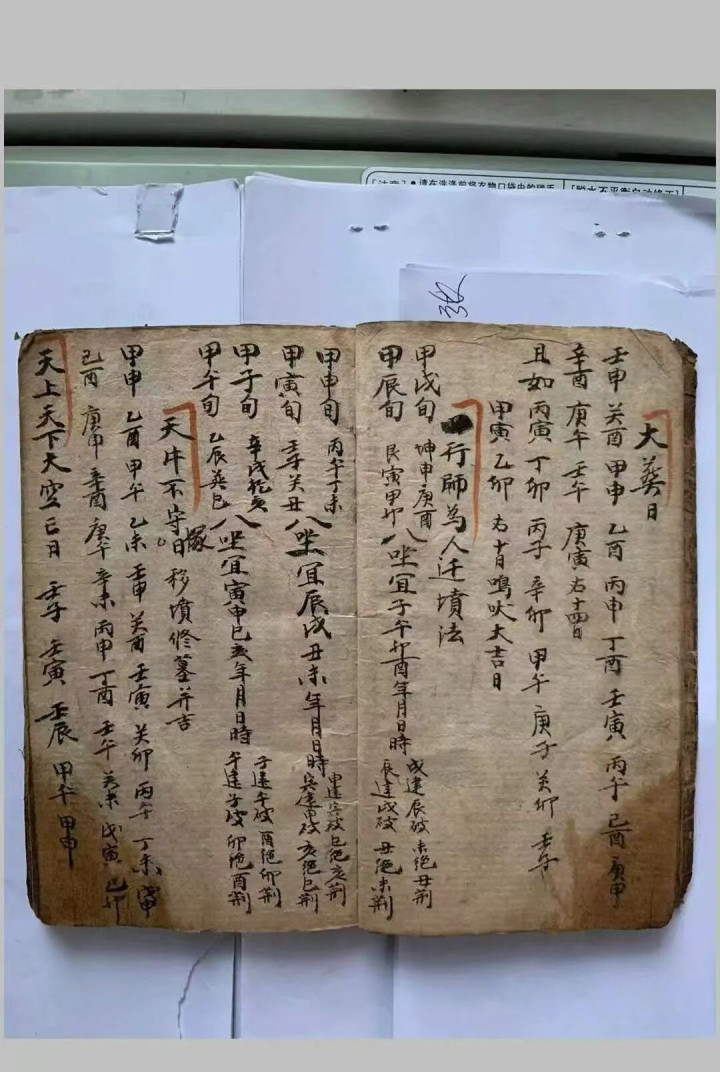 大葬日
壬申 癸酉 甲申 乙酉 丙申 丁酉 壬寅 丙午 己酉 庚申
辛酉 庚午 壬午 庚寅 右十四日
且如 丙寅 丁卯 丙子 辛卯 甲午 庚子 癸卯 壬子
甲寅 乙卯 右十日鳴吠大吉日
行師為人迁墳法
甲戌旬 坤申庚酉
甲辰旬 艮寅甲卯
八坐宜子午卯酉年月日時
戌建辰破 未絕丑荆
辰建戌破 丑絕未荆
甲申旬 丙午丁未
甲寅旬 壬子癸丑
八坐宜辰戌丑未年月日時
申建寅破 巳絕亥荆
寅建申破 亥絕巳荆
甲子旬 辛戌乾亥
甲午旬 乙辰巽巳
八坐宜寅申巳亥年月日時
子建午破 酉絕卯荆
午建子破 卯絕酉荆
天牛不守塚日移墳修墓并吉
甲申 乙酉 甲午 乙未 壬申 癸酉 壬寅 癸卯 丙午 丁未 戊申
己酉 庚申 辛酉 庚午 辛未 丙申 丁酉 壬午 癸未 戊寅 己卯
天上天下大空亡日 壬子 壬寅 壬辰 甲午 甲申